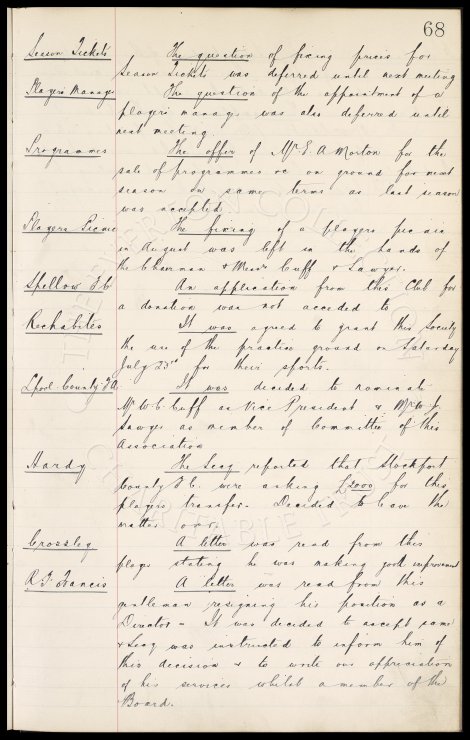 68
Season Tickets The question of fixing prices for
Season Tickets was deferred until next meeting
Players Manager The question of the appointment of a
players manager was also deferred until
next meeting.
Programmes The offer of Mr E. A Morton for the
sale of programmes &c on ground for next
season on same terms as last season
was accepted
Players Picnic The fixing of a players picnic
in August was left in the hands of
the Chairman & Messrs Cuff & Lawyer.
Spellow F.C. An application from this Club for
a donation was not acceded to
Rechabites It was agreed to grant this Society
the use of the practice ground on Saturday
July 23rd for their sports.
Lpool County F.A. It was decided to nominate
Mr W. C. Cuff as Vice President & Mr W. J.
Sawyer as member of Committee of this
Association
Hardy The Secy reported that Stockport
County F.C. were asking £2000 for this
players transfer. Decided to leave the
matter over.
Crossley A letter was read from this
player stating he was making good improvement
R. T. Francis A letter was read from this
gentleman resigning his position as a
Director - It was decided to accept same
& Secy was instructed to inform him of
this decision & to write our appreciation
of his services whilst a member of the
Board.
THE EVERTON COLLECTION
CHARITABLE TRUST